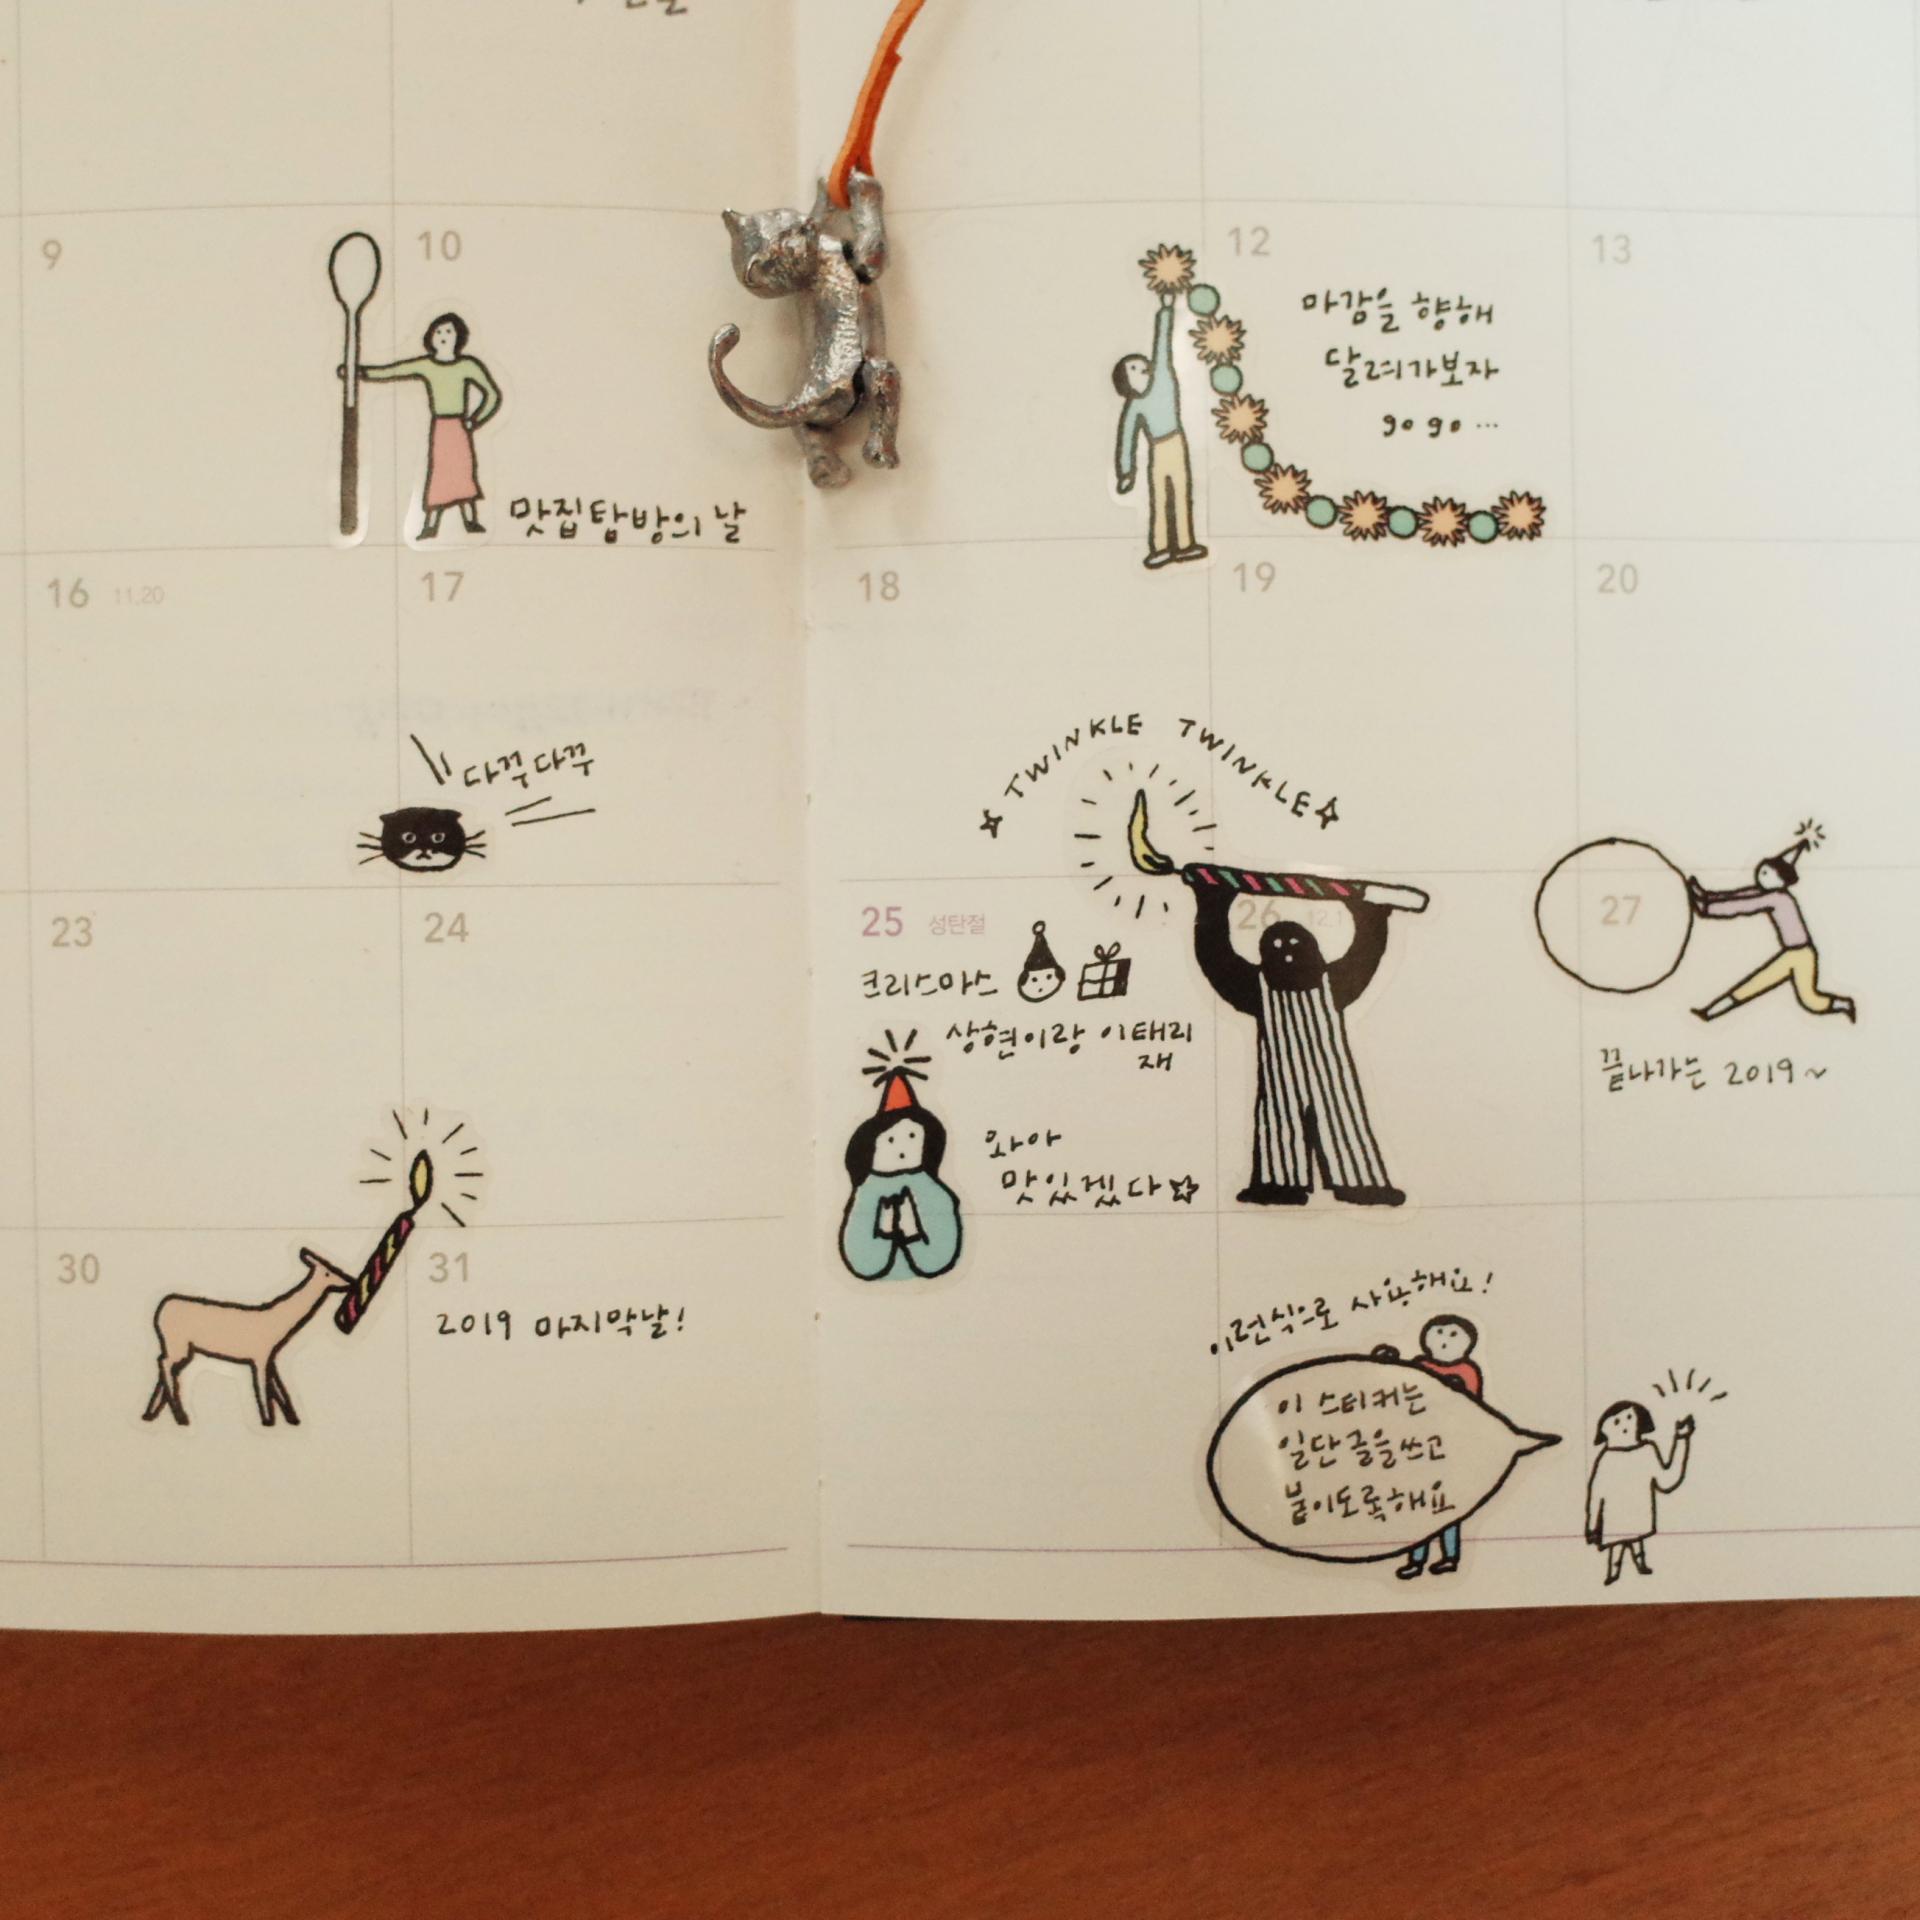 9
10
12
13
맛집탐방의 날
마감을 향해
달려가보자
go go ...
16 11.20
17
18
19
20
다꾸다꾸
☆ TWINKLE TWINKLE ☆
23
24
25 성탄절
26
27
크리스마스
상현이랑 이태리
재
와아
맛있겠다☆
끝나가는 2019~
30
31
2019 마지막날!
이런식으로 사용해요!
이 스티커는
일단 글을 쓰고
붙이도록해요